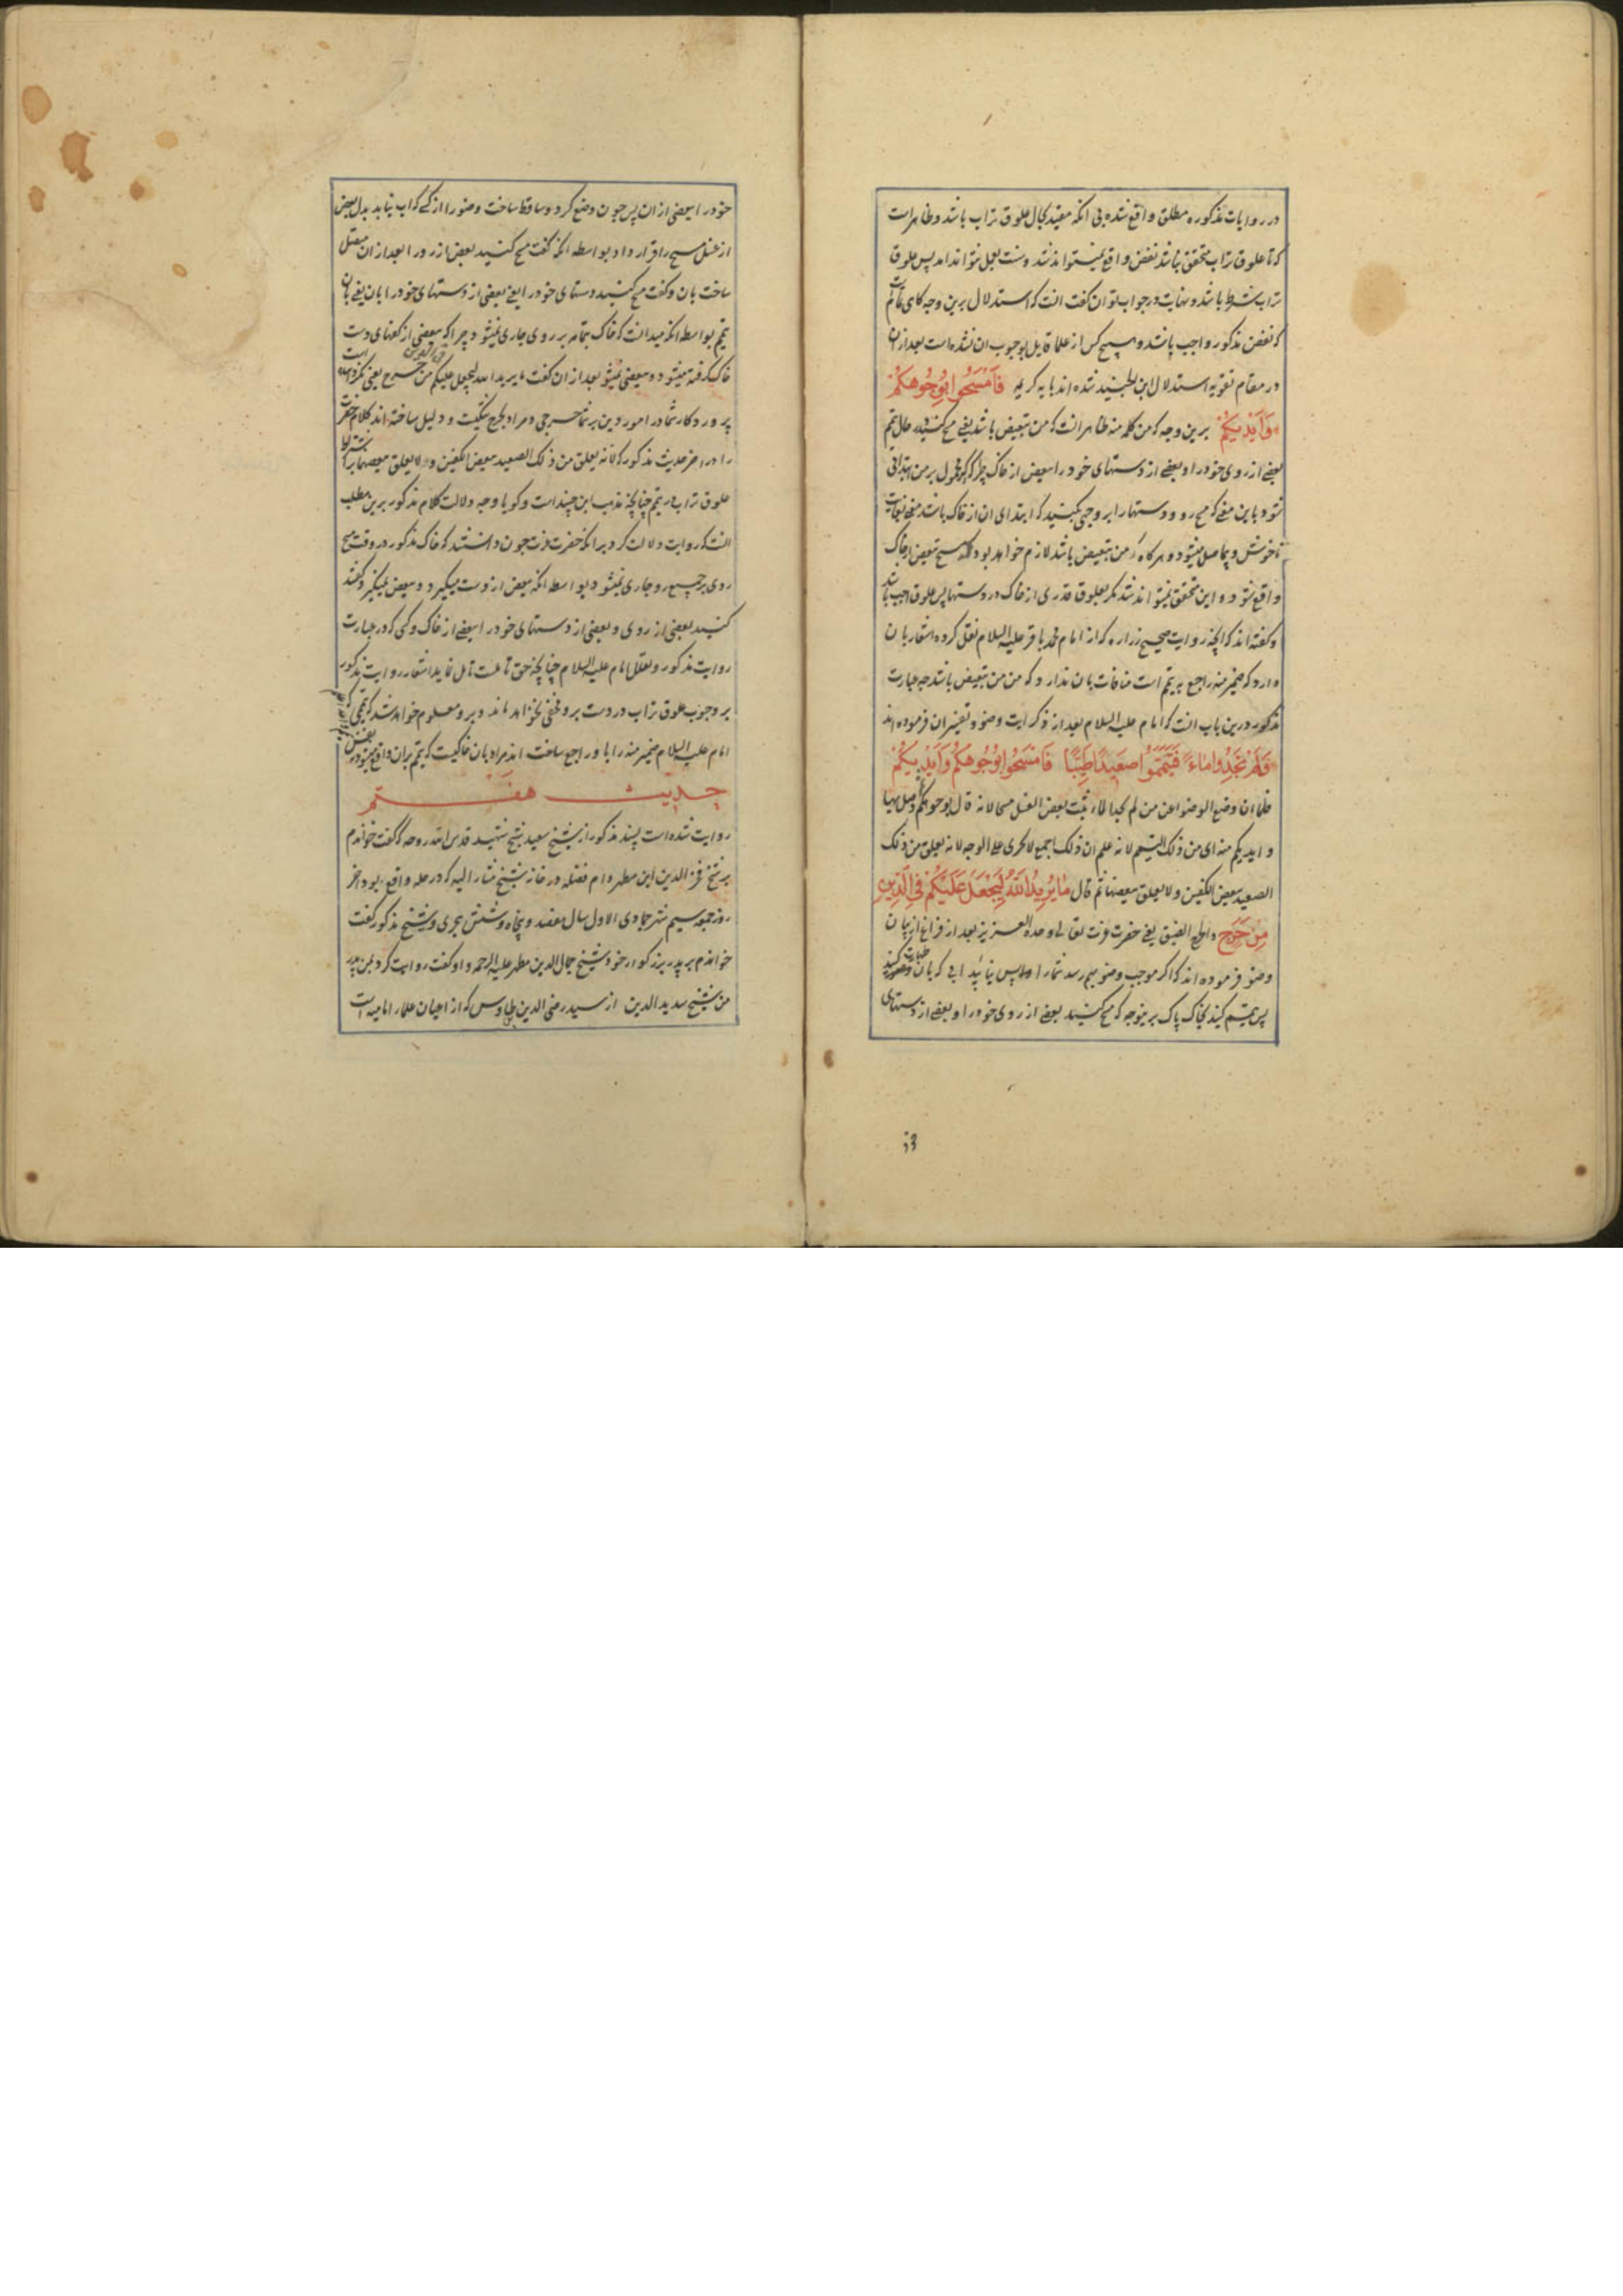 در روایات مذکوره مطلق واقع شده بی انکه مقید بحال علوق تراب باشد و ظاهر است
که تا علوق تراب متحقق نباشد نفض واقع نمیتواند شد و سنت بعمل نتواند امد پس علوق
تراب شرط باشد و نهایت در جواب توان گفت انست که استدلال برین وجه کاهی تمام است
که نفض مذکور واجب باشد و هیچ کس از علما قایل بوجوب ان نشده است بعد از ان
در مقام تقویه استدلال ابن جنید شده اند بایه کریمه فَامْسَحُوا بِوُجُوهِكُمْ
وَأَيْدِيكُمْ برین وجه که من کلمه منه ظاهر انست که من تبعیض باشد یعنی مسح کنید در حال تیمم
بعضی از روی خود را و بعضی از دستهای خود را ببعض از خاک چرا که اکر محمول بر من ابتدائی
شود باین معنی که مسح رو و دستها را بر وجهی بکنید که ابتدای ان از خاک باشد معنی بغایت
ناخوش و بیحاصل میشود و هر کاه که من تبعیض باشد لازم خواهد بود که مسح ببعض از خاک
واقع شود و این متحقق نمیتواند شد مکر بعلوق قدری از خاک در دستها پس علوق واجب باشد
و کفته اند که انچه در روایت صحیح زراره که از امام محمد باقر علیه السلام نقل کرده اشعار بان
دارد که ضمیر منه راجع به تیمم است منافات بان ندارد که من من تبعیض باشد چه عبارت
مذکور درین باب انست که امام علیه السلام بعد از ذکر ایت وضو و تفسیر ان فرموده اند
فَلَمْ تَجِدُوا مَاءً فَتَيَمَّمُوا صَعِيدًا طَيِّبًا فَامْسَحُوا بِوُجُوهِكُمْ وَأَيْدِيكُمْ
فلما ان وضع الوضوء عن من لم یجد الماء اثبت بعض الغسل مسحا لانه قال بوجوهکم ثم وصل بها
و ایدیکم منه ای من ذلک التیمم لانه علم ان ذلک اجمع لا یجری علی الوجه لانه یعلق من ذلک
الصعید ببعض الکفین و لا یعلق ببعضها ثم قال مَا يُرِيدُ اللَّهُ لِيَجْعَلَ عَلَيْكُمْ فِي الدِّينِ
مِنْ حَرَجٍ و الحرج الضیق یعنی حضرت عزت تعالی وحده العزیز بعد از فراغ از بیان
وضو فرموده اند که اکر موجب وضو بهم رسد شما را و پس نیابید ابی که بان طهارت کنید
پس تیمم کنید بخاک پاک برینوجه که مسح کنید بعضی از روی خود را و بعضی از دستهای
خود را ببعضی از ان پس چون وضع کرد و ساقط ساخت وضو را از کسی که اب نیابد بدل بعض
از غسل مسح را قرار داد بواسطه انکه کفت مسح کنید بعض از رو را بعد از ان متصل
ساخت بان و کفت مسح کنید دستهای خود را یعنی بعضی از دستهای خود را بان یعنی بان
تیمم بواسطه انکه میدانست که خاک بتمامه بر روی جاری نمیشود چرا که ببعضی از کفهای دست
خاک کرفته میشود و ببعضی نمیشود بعد از ان کفت ما یرید الله لیجعل علیکم من حرج یعنی نمیخواهد
پروردکار شما در امور دین بر شما حرجی و مراد بحرج تنکیست و دلیل ساخته اند کلام حضرت
را در اخر حدیث مذکور که لانه یعلق من ذلک الصعید ببعض الکفین و لا یعلق ببعضها بر اشتراط
علوق تراب در تیمم چنانچه مذهب ابن جنید است و کویا وجه دلالت کلام مذکور برین مطلب
انست که روایت دلالت کرد بر انکه حضرت عزت چون دانستند که خاک مذکور در وقت مسح
روی بر جمیع رو جاری نمیشود بواسطه انکه ببعض از دست میکیرد و ببعض نمیکیرد کفتند
کنید بعضی از روی و بعضی از دستهای خود را ببعضی از خاک و کسی که در عبارت
روایت مذکور و تعلیل امام علیه السلام چنانچه حق تامل است تامل نماید اشعار روایت مذکور
بر وجوب علوق تراب در دست برو مخفی نخواهد ماند و برو معلوم خواهد شد که تیممی که
امام علیه السلام ضمیر منه را باو راجع ساخته اند مراد بان خاکیست که تیمم بران واقع میشود
حدیث هفتم
روایت شده است بسند مذکور از شیخ سعید شیخ شهید قدس الله روحه که کفت خواندم
بر شیخ فخر الدین ابن مطهر دام فضله در خانه شیخ مشار الیه که در حله واقع بود اخر
روز جمعه سیم شهر جمادی الاول سال هفصد و پنجاه و شش هجری و شیخ مذکور کفت
خواندم بر پدر بزرکوار خود شیخ جمال الدین مطهر علیه الرحمه و او کفت روایت کرد بمن پدر
من شیخ سدید الدین از سید رضی الدین طاوس که از اعیان علماء امامیه است